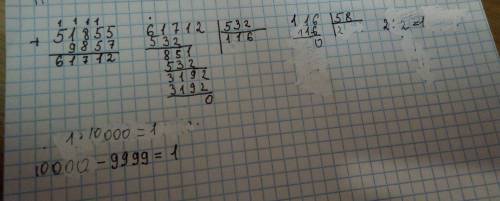 1 1 1 1
+ 51855
9857
61712
61712 | 532
532 | 116
851
532
3192
3192
0
116 | 58
116 | 2
0
2:2=1
10000 = 1
10000 - 9999 = 1